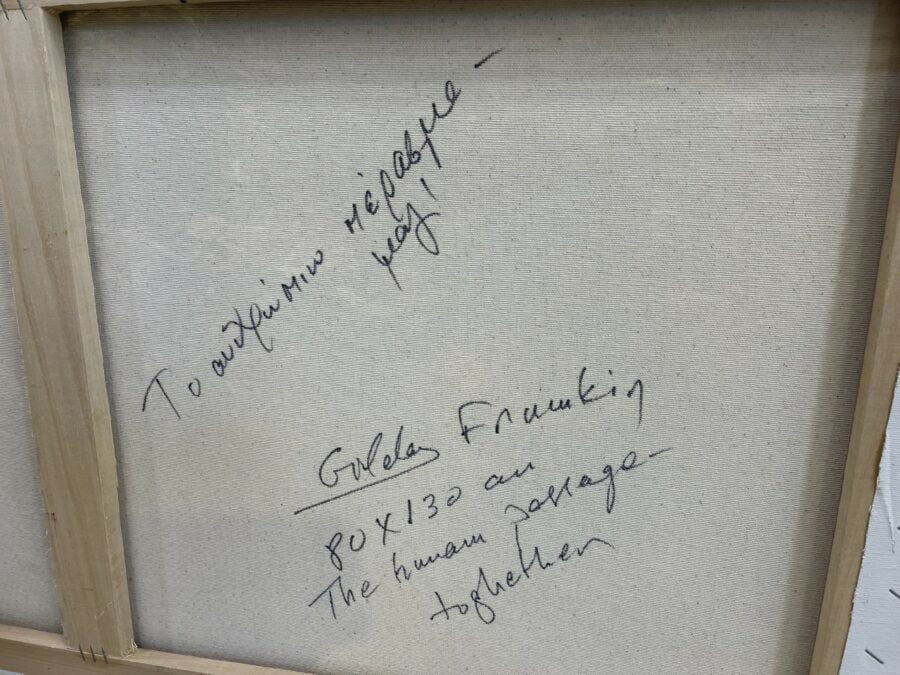 Το ανθρώπινο πέρασμα -
μαζί!
Golda Frumkin
80x130 cm
The human passage-
toghether